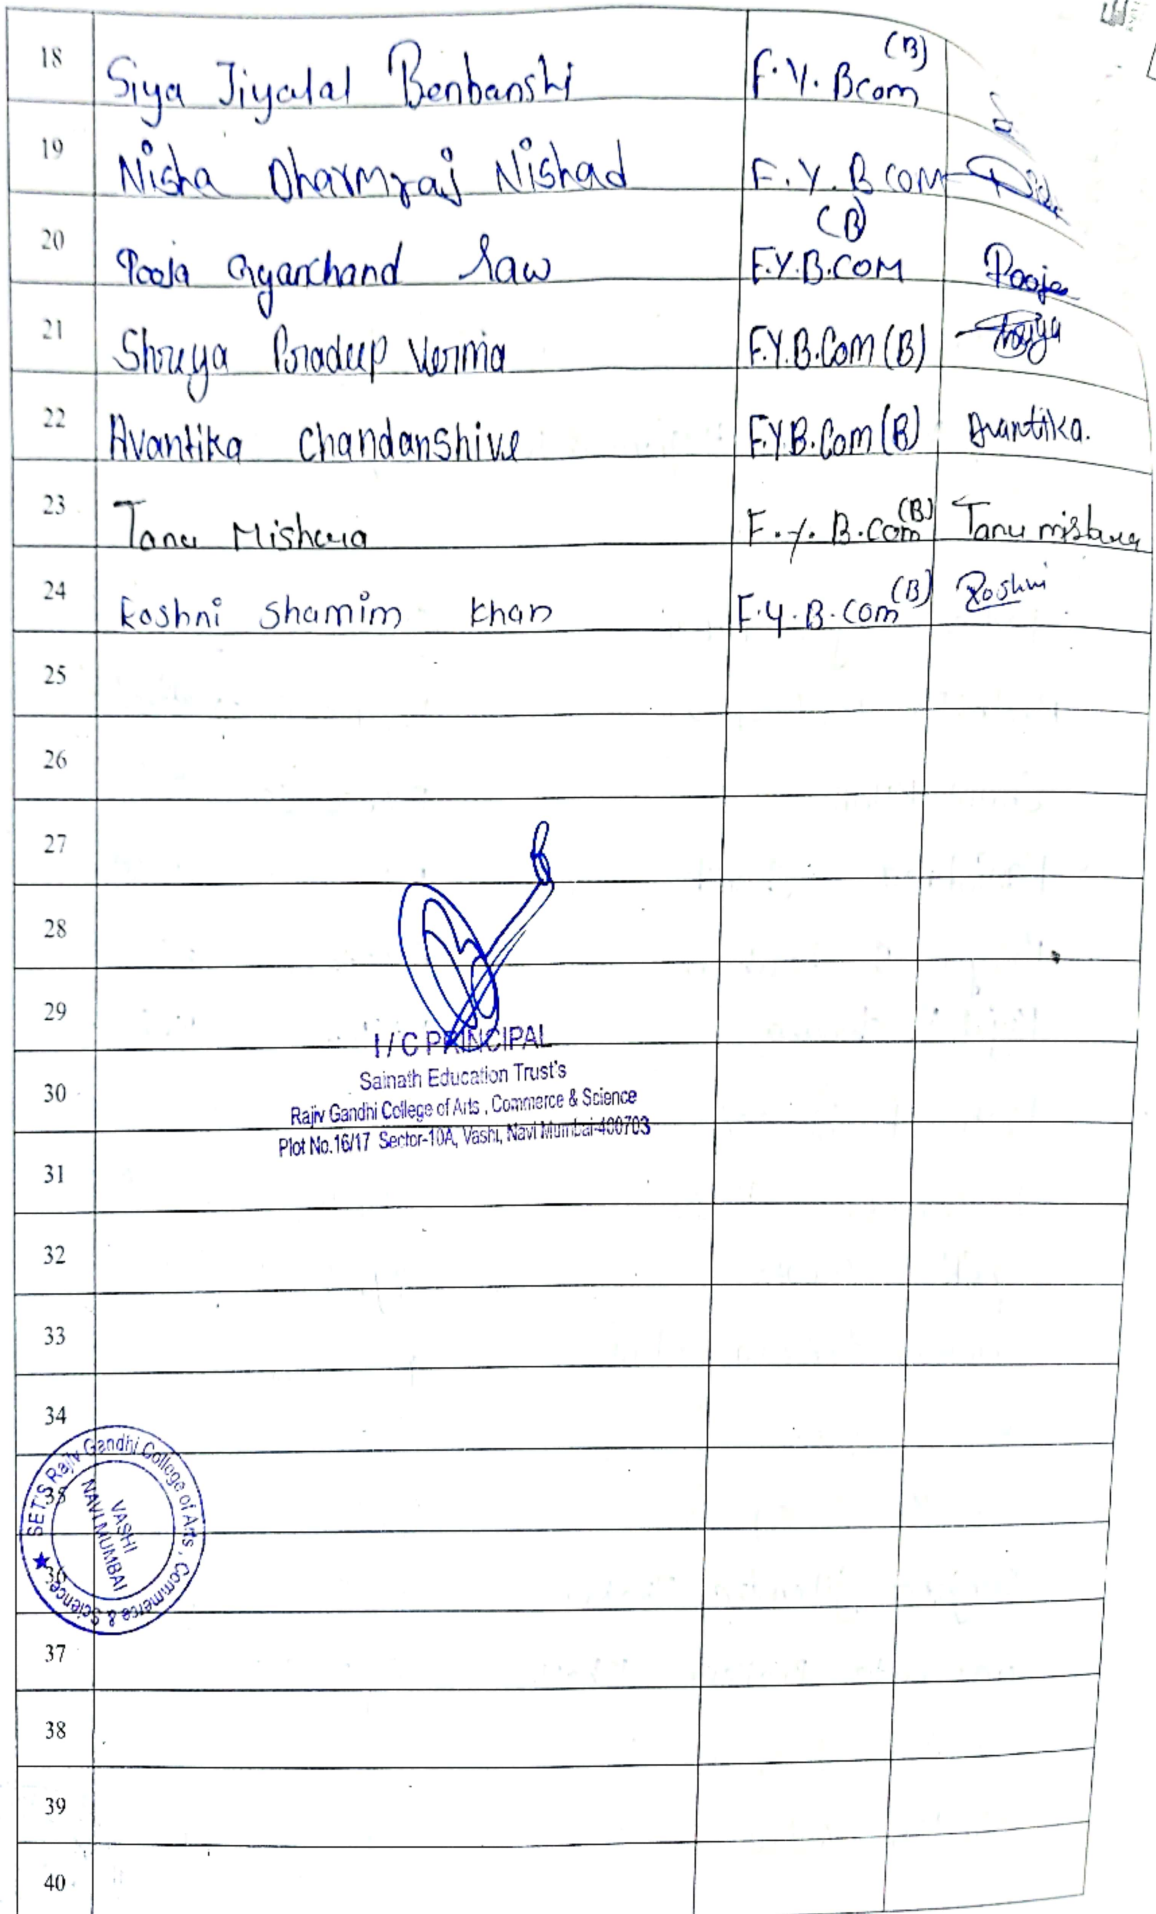 18 Siya Jiyalal Benbanshi F.Y. Bcom (B)
19 Nisha Dharmraj Nishad F.Y.B COM (B)
20 Pooja Gyanchand Saw F.Y.B.COM Pooja
21 Shreya Pradeep Verma F.Y.B.Com (B)
22 Avantika Chandanshive F.Y.B.Com (B) Avantika.
23 Tanu Mishra F.Y.B.Com (B) Tanu mishra
24 Roshni Shamim Khan F.Y.B.Com (B) Roshni
25
26
27
28
29
I/C PRINCIPAL
Sainath Education Trust's
30
Rajiv Gandhi College of Arts, Commerce & Science
Plot No.16/17 Sector-10A, Vashi, Navi Mumbai-400703
31
32
33
34
SET'S Rajiv Gandhi College of Arts, Commerce & Science
VASHI
NAVI MUMBAI
35
36
37
38
39
40